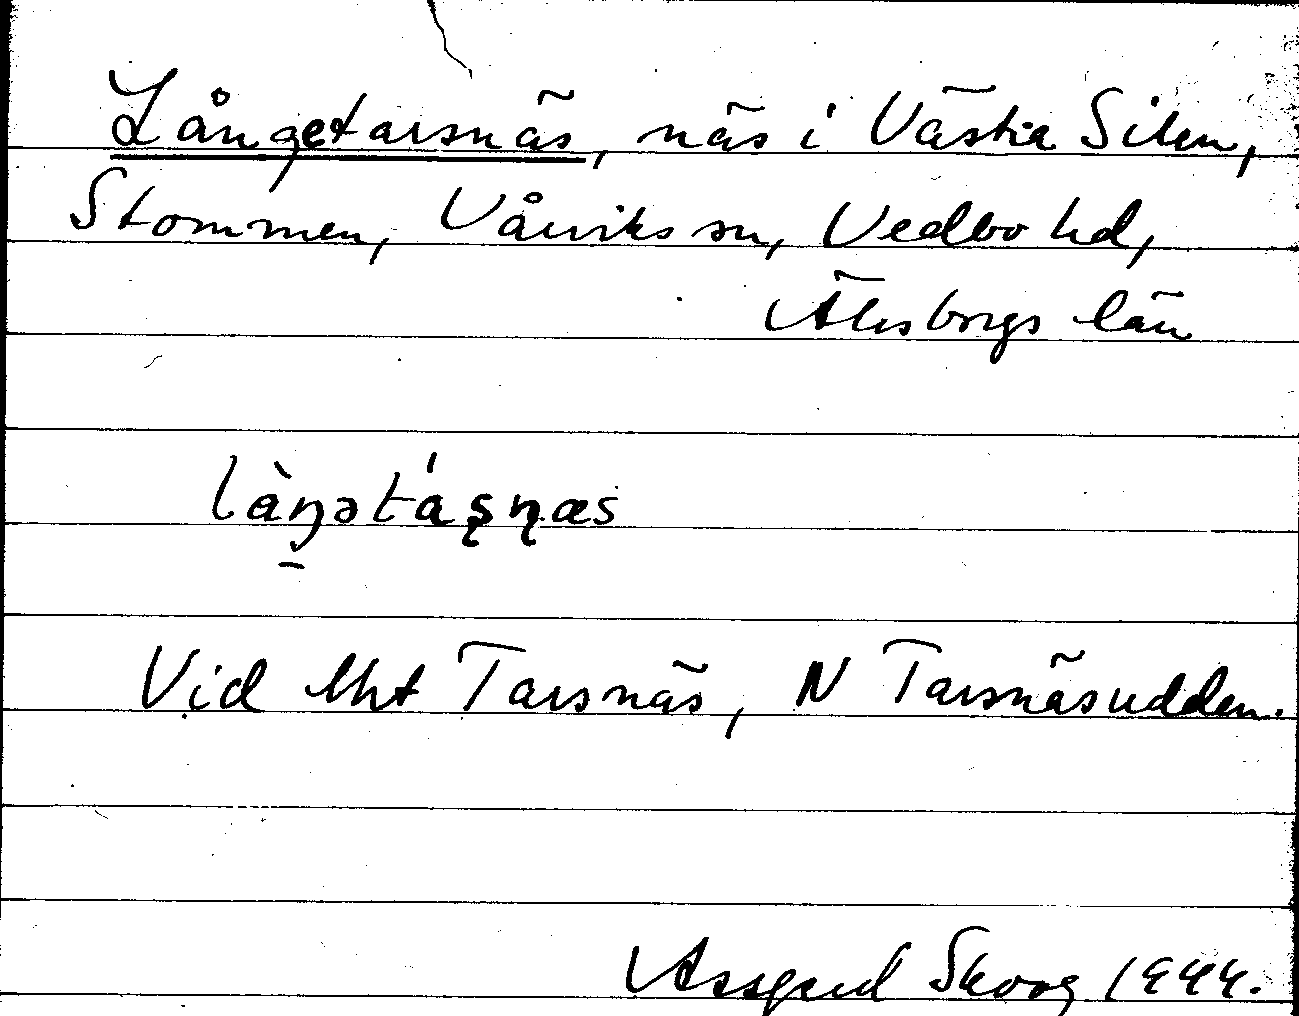 Långetarsnäs, näs i Västra Silen,
Stommen, Vårviks sn, Vedbo hd,
Älvsborgs län
làŋətáʂɳæs
Vid lht Tarsnäs, N Tarsnäsudden.
Assgerd Skoog 1944.